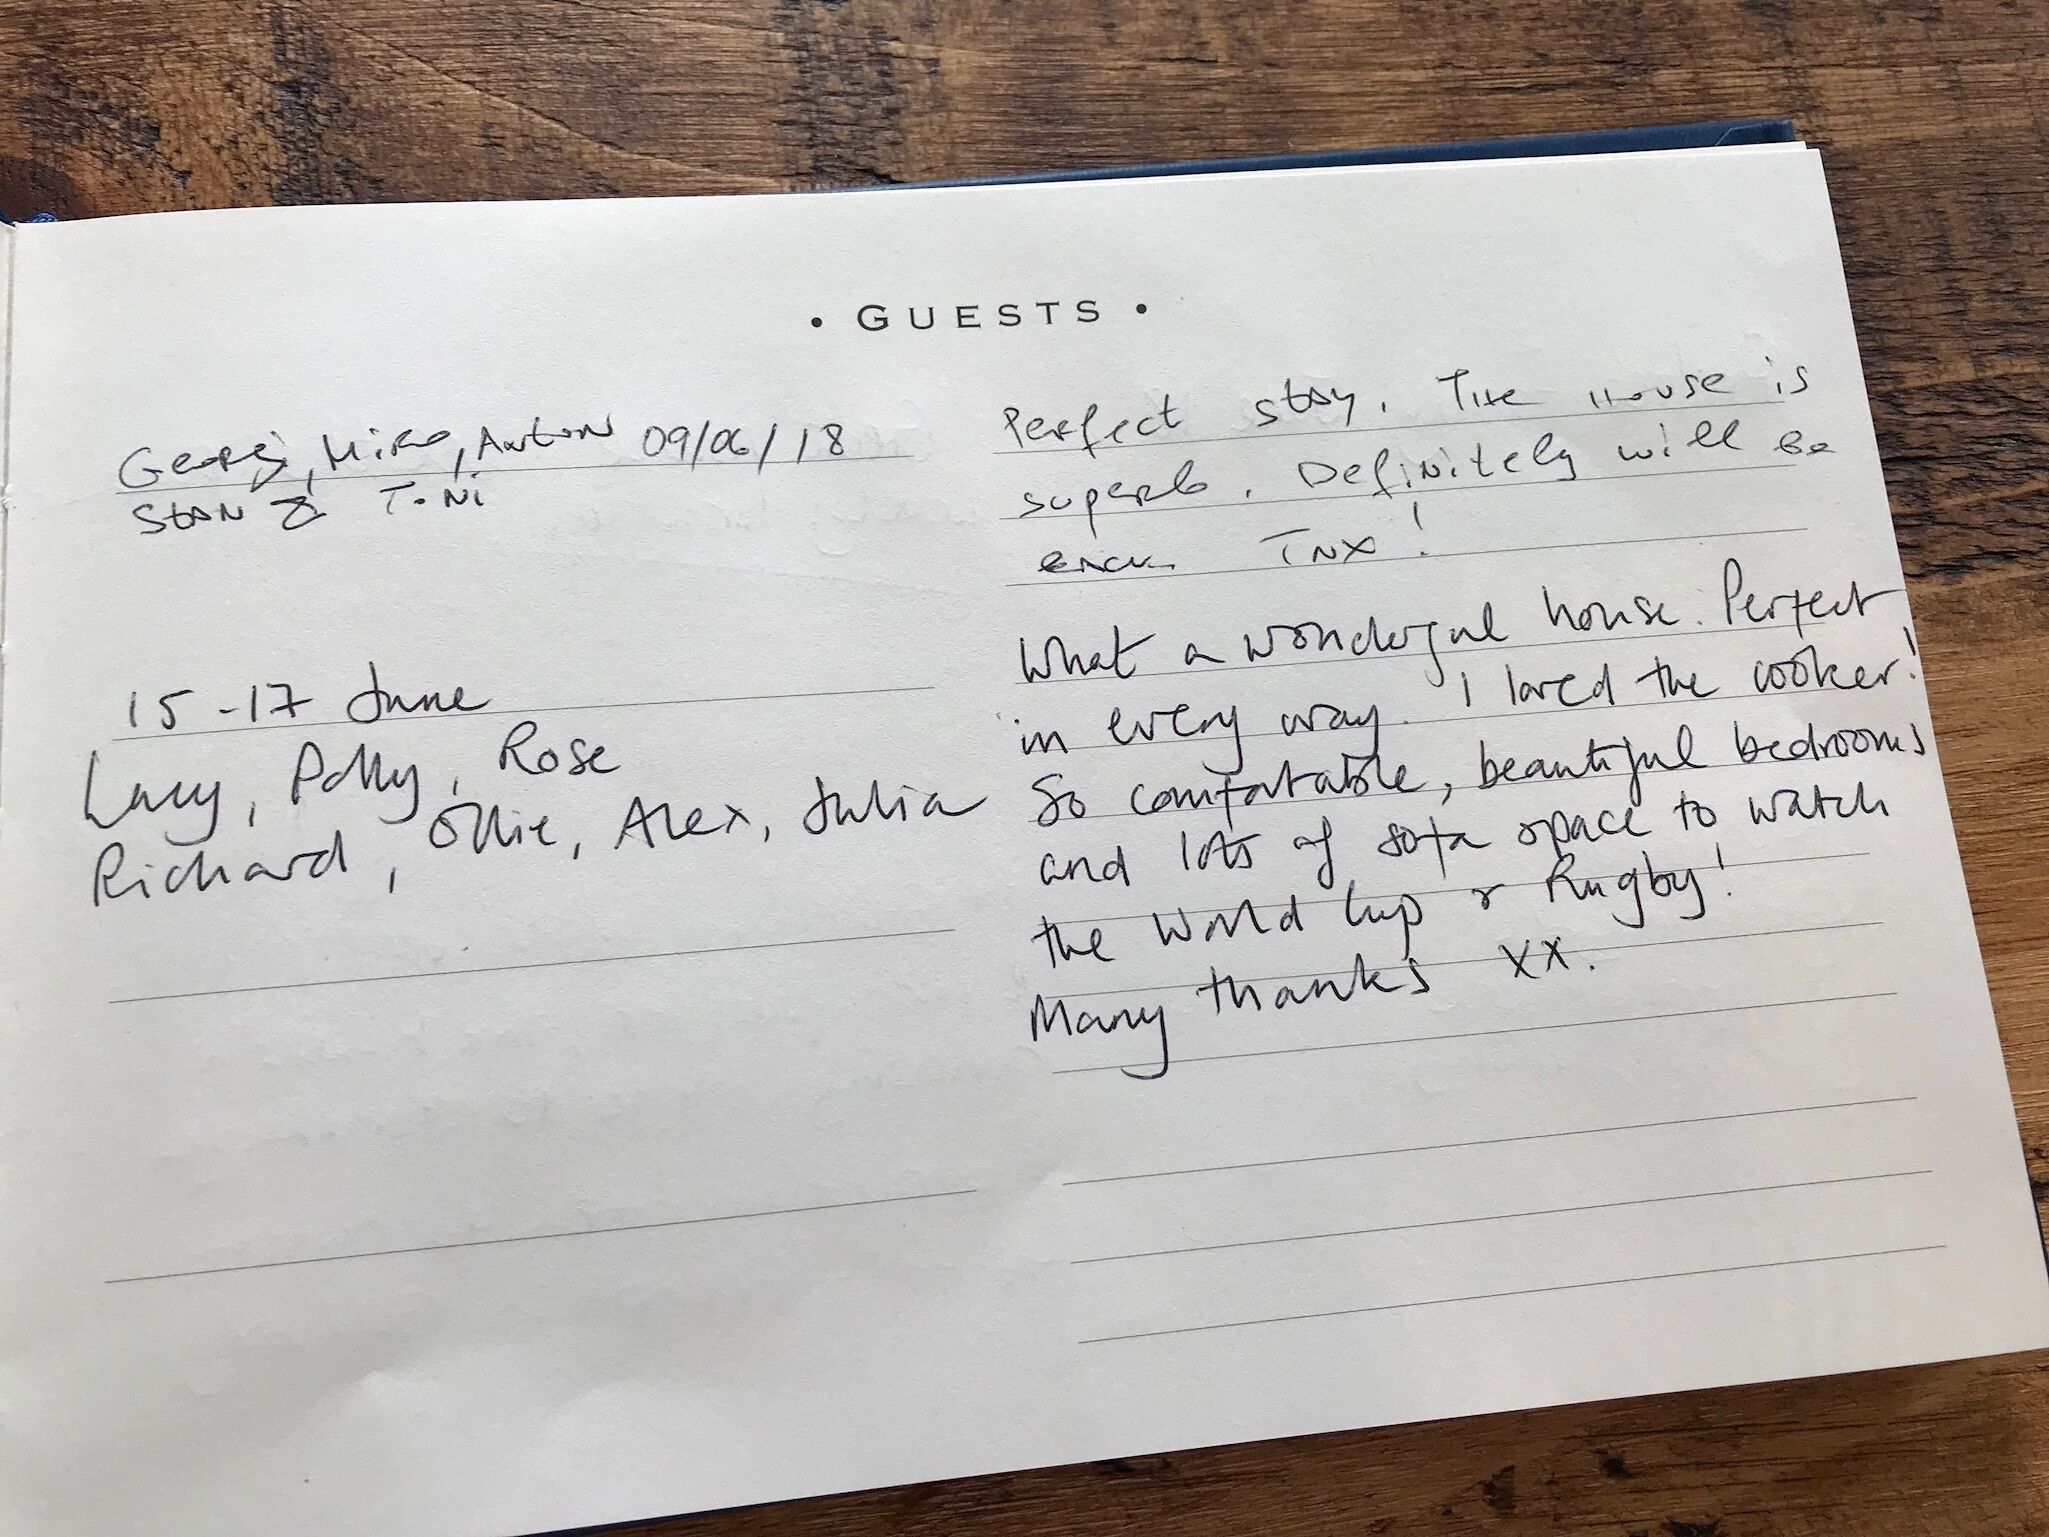 • GUESTS •
Georgi, Miro, Anton 09/06/18
Stan & Toni
Perfect stay. The house is
superb. Definitely will be
back TNX!
15-17 June
Lucy, Polly, Rose
Richard, Ollie, Alex, Julia
What a wonderful house. Perfect
in every way. I loved the cooker!
So comfortable, beautiful bedrooms
and lots of sofa space to watch
the World Cup & Rugby!
Many thanks xx.